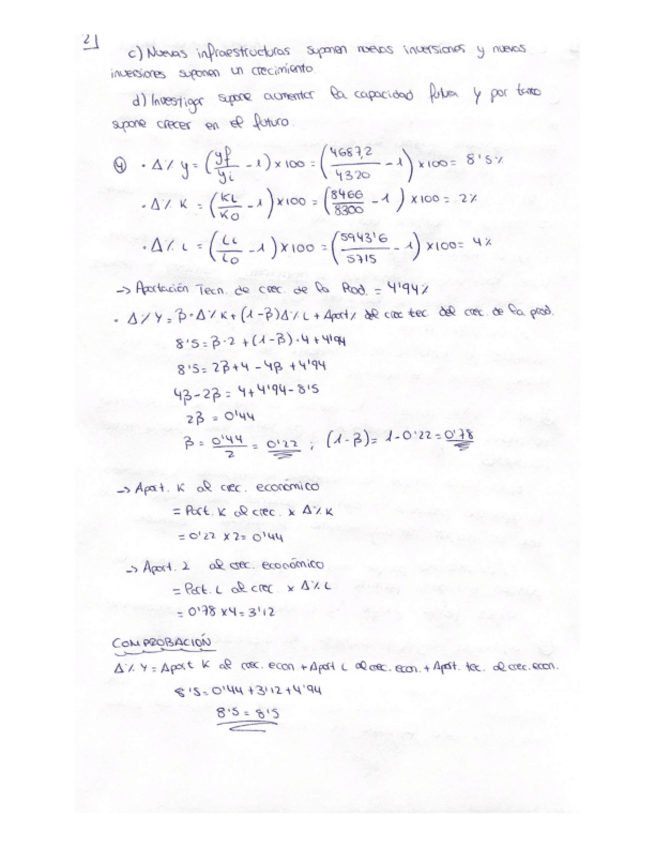 2]
c) Nuevas infraestructuras suponen nuevas inversiones y nuevas
inversiones suponen un crecimiento.
d) Investigar supone aumentar la capacidad futura y por tanto
supone crecer en el futuro.
④ • Δ% y = (yf/yi - 1) x 100 = (4687,2/4320 - 1) x 100 = 8'5%
• Δ% K = (KL/K0 - 1) x 100 = (8466/8300 - 1) x 100 = 2%
• Δ% L = (LL/L0 - 1) x 100 = (5943'6/5715 - 1) x 100 = 4%
-> Aportación Tecn. de crec. de la Prod. = 4'94%
• Δ% Y = β • Δ% K + (1-β) Δ% L + Aport% del crec tec. del crec. de la prod.
8'5 = β • 2 + (1-β) • 4 + 4'94
8'5 = 2β + 4 - 4β + 4'94
4β - 2β = 4 + 4'94 - 8'5
2β = 0'44
β = 0'44/2 = 0'22 ; (1-β) = 1 - 0'22 = 0'78
-> Aport. K al crec. económico
= Part. K al crec. x Δ% K
= 0'22 x 2 = 0'44
-> Aport. 2 al crec. económico
= Part. L al crec. x Δ% L
= 0'78 x 4 = 3'12
COMPROBACIÓN
Δ% Y = Aport K al crec. econ + Aport L al crec. econ. + Aport. tec. al crec. econ.
8'5 = 0'44 + 3'12 + 4'94
8'5 = 8'5